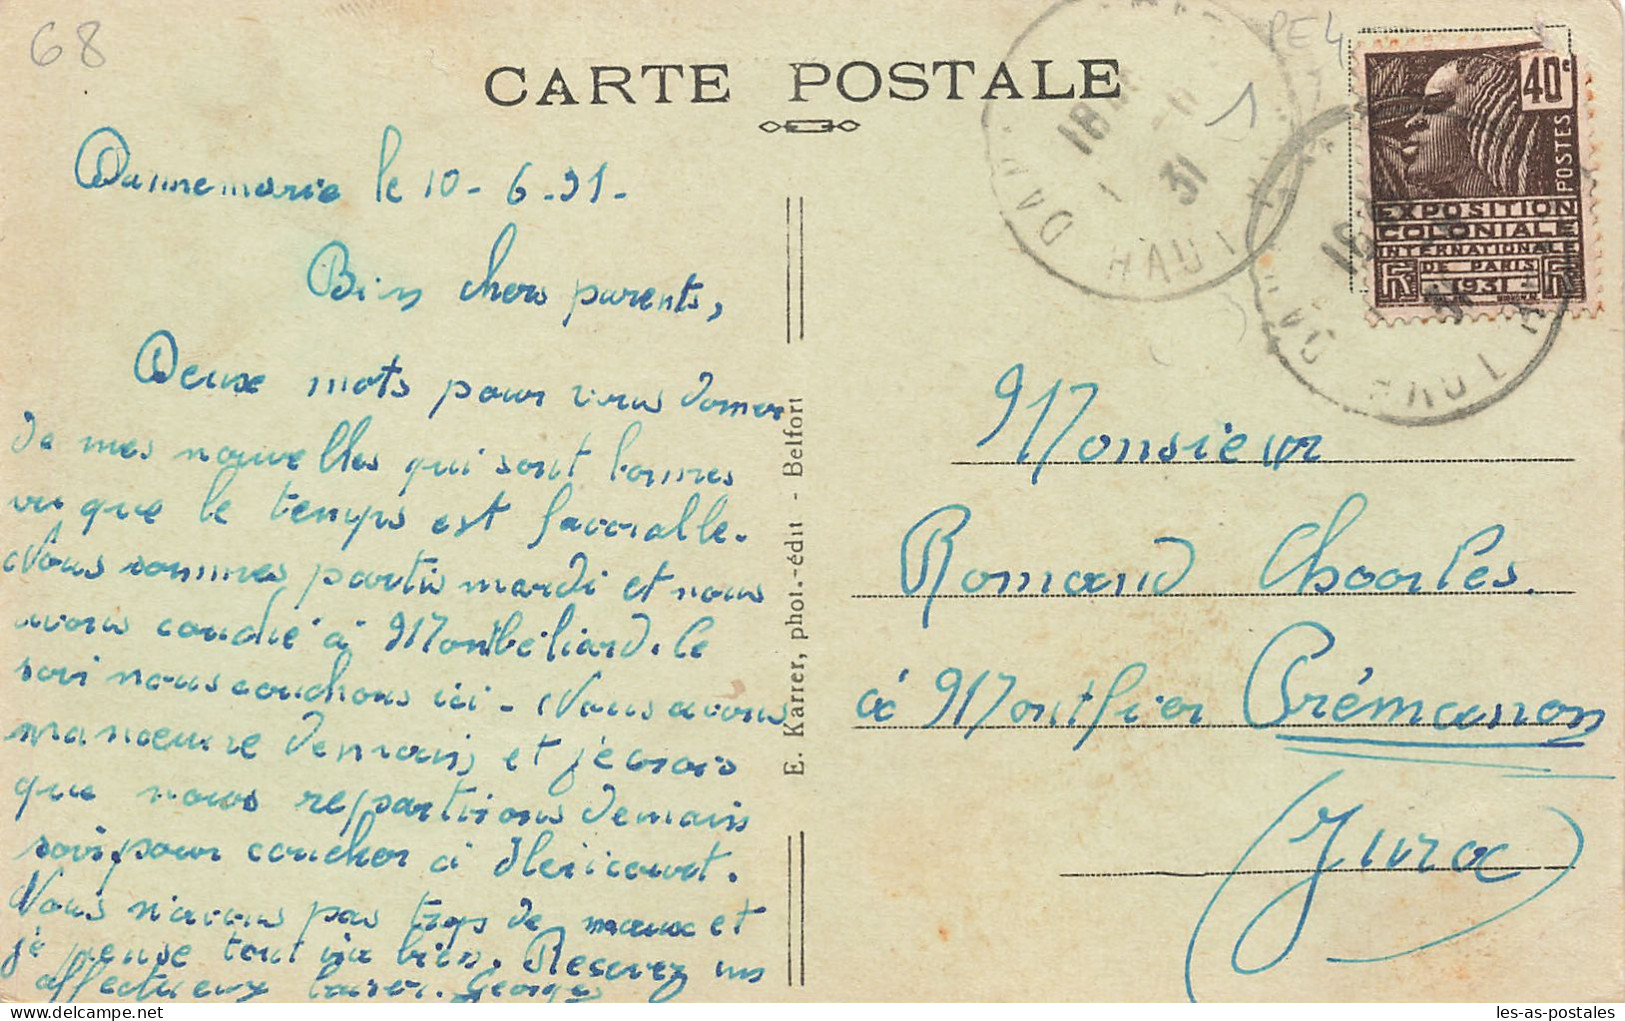 68
PE4
CARTE POSTALE
1
40c
POSTES
EXPOSITION
COLONIALE
INTERNATIONALE
DE PARIS
1931
18
31
DAN
HAUT
Dannemarie le 10-6-31-
Bien chers parents,
Deux mots pour vous donner
de mes nouvelles qui sont bonnes
vu que le temps est favorable.
Nous sommes partis mardi et nous
avons couché à Montbéliard. Ce
soir nous couchons ici - Nous avons
manoeuvre demain et je crois
que nous repartirons demain
soir pour coucher à Héricourt.
Nous n'avons pas trop de maux et
je pense tout ira bien. Recevez mes
affectueux baisers. Georges
E. Karrer, phot.-édit - Belfort
Monsieur
Romand Charles
à Prémanon
(Jura)
les-as-postales